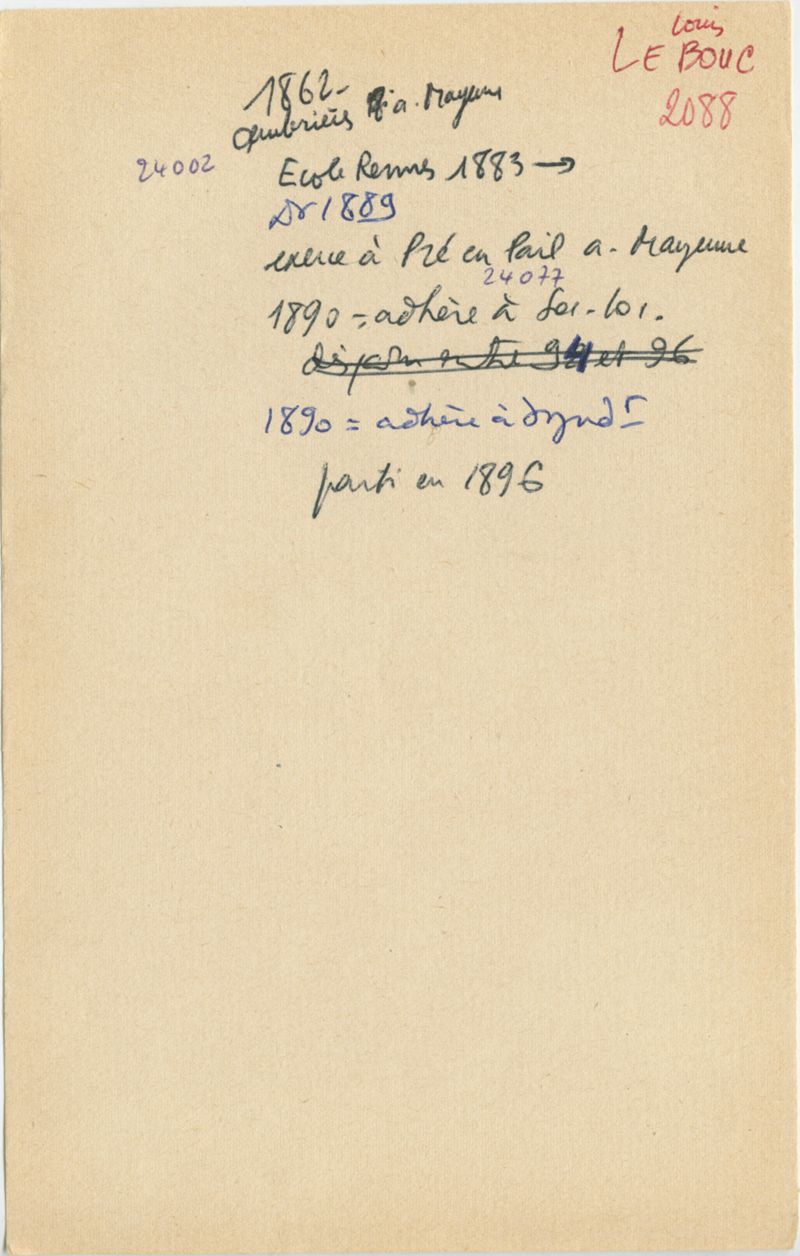 Louis
LE BOUC
2088
1862-
Ambrières a. Mayenne
24002
Ecole Rennes 1883 →
Dr 1889
exerce à Pré en Pail a. Mayenne
24077
1890 = adhère à Soc. loc.
disparu entre 94 et 96
1890 = adhère à Synd
parti en 1896